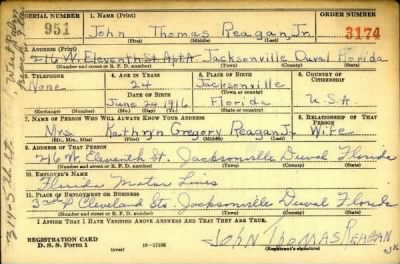 SERIAL NUMBER 1. NAME (Print) ORDER NUMBER
951 John Thomas Reagan, Jr. 3174
(First) (Middle) (Last)
2. ADDRESS (Print)
216 W. Eleventh St. Apt A. Jacksonville Duval Florida
(Number and street or R. F. D. number) (Town) (County) (State)
3. TELEPHONE 4. AGE IN YEARS 5. PLACE OF BIRTH 6. COUNTRY OF CITIZENSHIP
None 24 Jacksonville
DATE OF BIRTH (Town or county)
June 24, 1916 Florida U.S.A.
(Exchange) (Number) (Mo.) (Day) (Yr.) (State or country)
7. NAME OF PERSON WHO WILL ALWAYS KNOW YOUR ADDRESS 8. RELATIONSHIP OF THAT PERSON
Mrs. Kathryn Gregory Reagan Jr. Wife
(Mr., Mrs., Miss) (First) (Middle) (Last)
9. ADDRESS OF THAT PERSON
216 W. Eleventh St. Jacksonville Duval Florida
(Number and street or R. F. D. number) (Town) (County) (State)
10. EMPLOYER'S NAME
Florida Motor Lines
11. PLACE OF EMPLOYMENT OR BUSINESS
3rd & Cleveland Sts. Jacksonville Duval Florida
(Number and street or R. F. D. number) (Town) (County) (State)
I AFFIRM THAT I HAVE VERIFIED ABOVE ANSWERS AND THAT THEY ARE TRUE.
REGISTRATION CARD
D. S. S. Form 1 (over) 16—17105 John Thomas Reagan
(Registrant's signature)